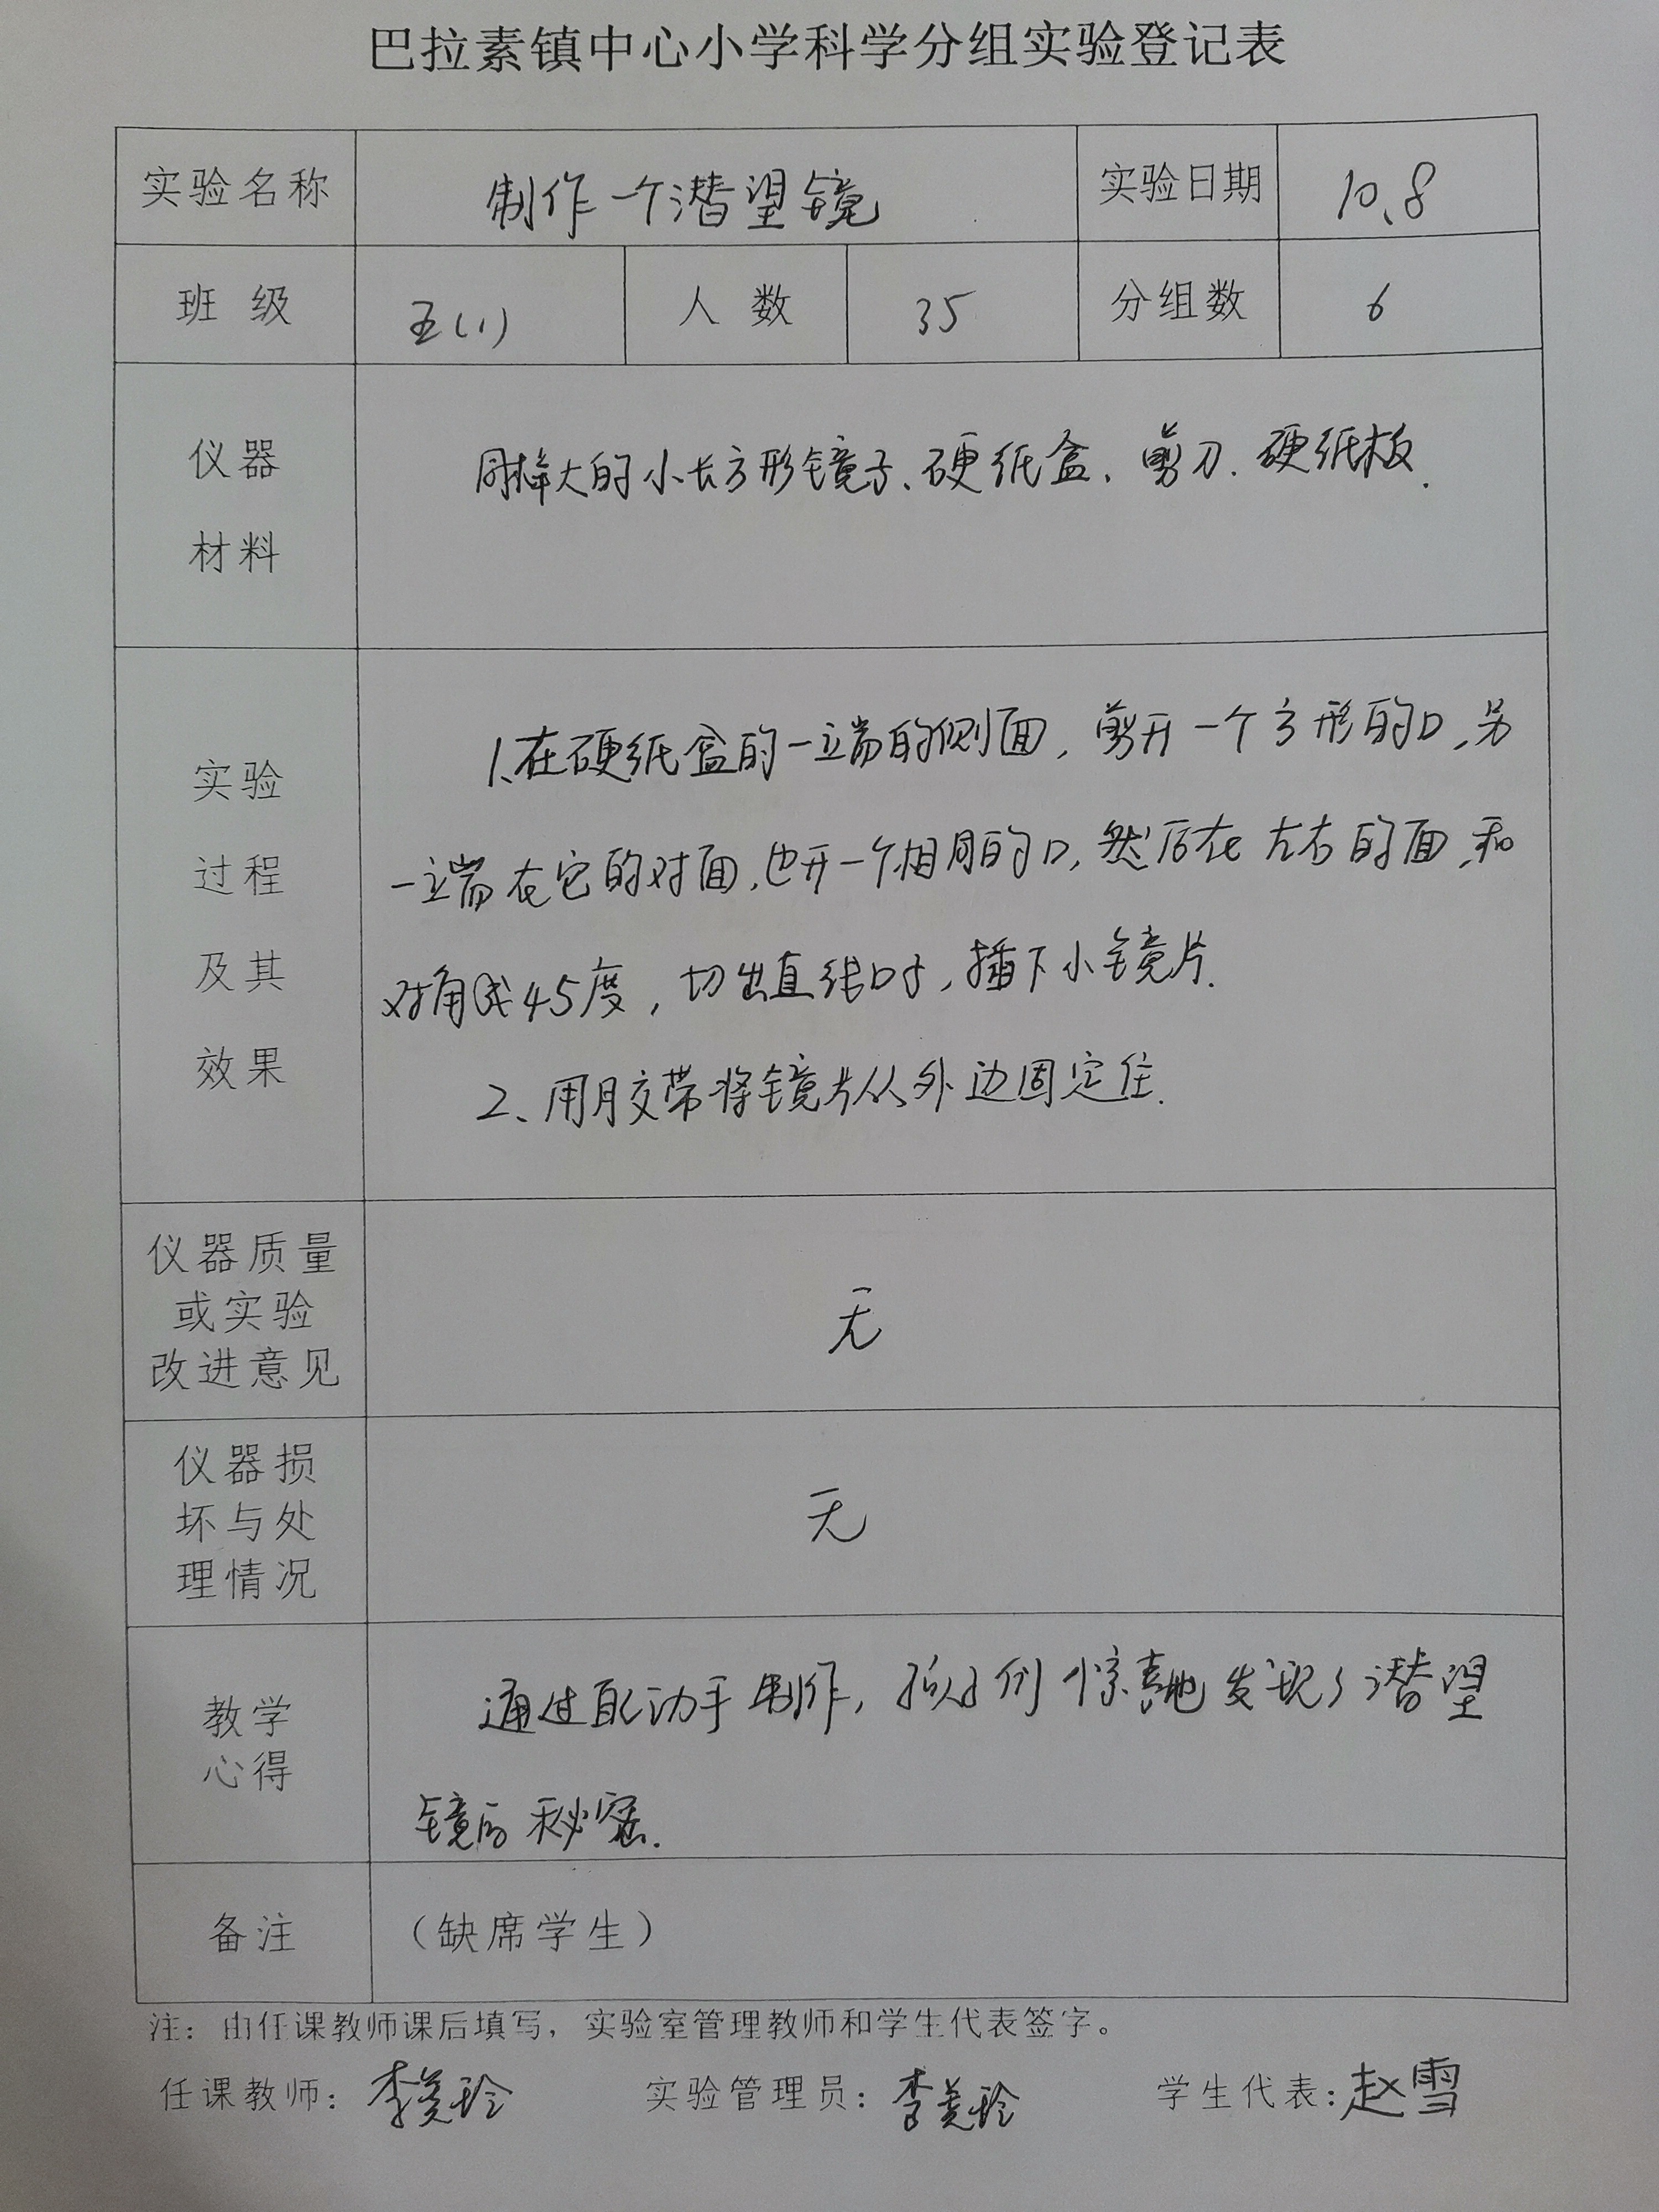 巴拉素镇中心小学科学分组实验登记表
实验名称 制作一个潜望镜 实验日期 10、8
班 级 五(1) 人 数 35 分组数 6
仪器
材料
同样大的小长方形镜子、硬纸盒、剪刀、硬纸板.
实验
过程
及其
效果
1、在硬纸盒的一端的侧面，剪开一个方形的口，另
一端在它的对面，也开一个相同的口，然后在左右的面，和
对角成45度，切出直线口子，插下小镜片.
2、用胶带将镜片从外边固定住.
仪器质量
或实验
改进意见
无
仪器损
坏与处
理情况
无
教学
心得
通过动手制作，孩子们惊喜地发现了潜望
镜的秘密.
备注 （缺席学生）
注：由任课教师课后填写，实验室管理教师和学生代表签字。
任课教师：李美玲 实验管理员：李美玲 学生代表：赵雪